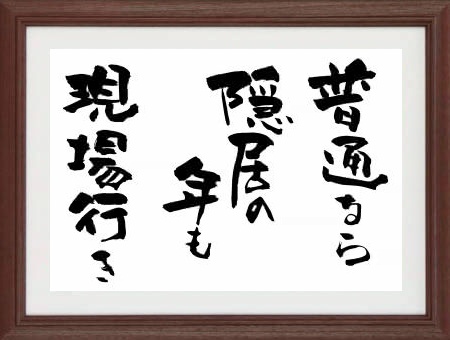 普通なら
隠居の
年も
現場行き